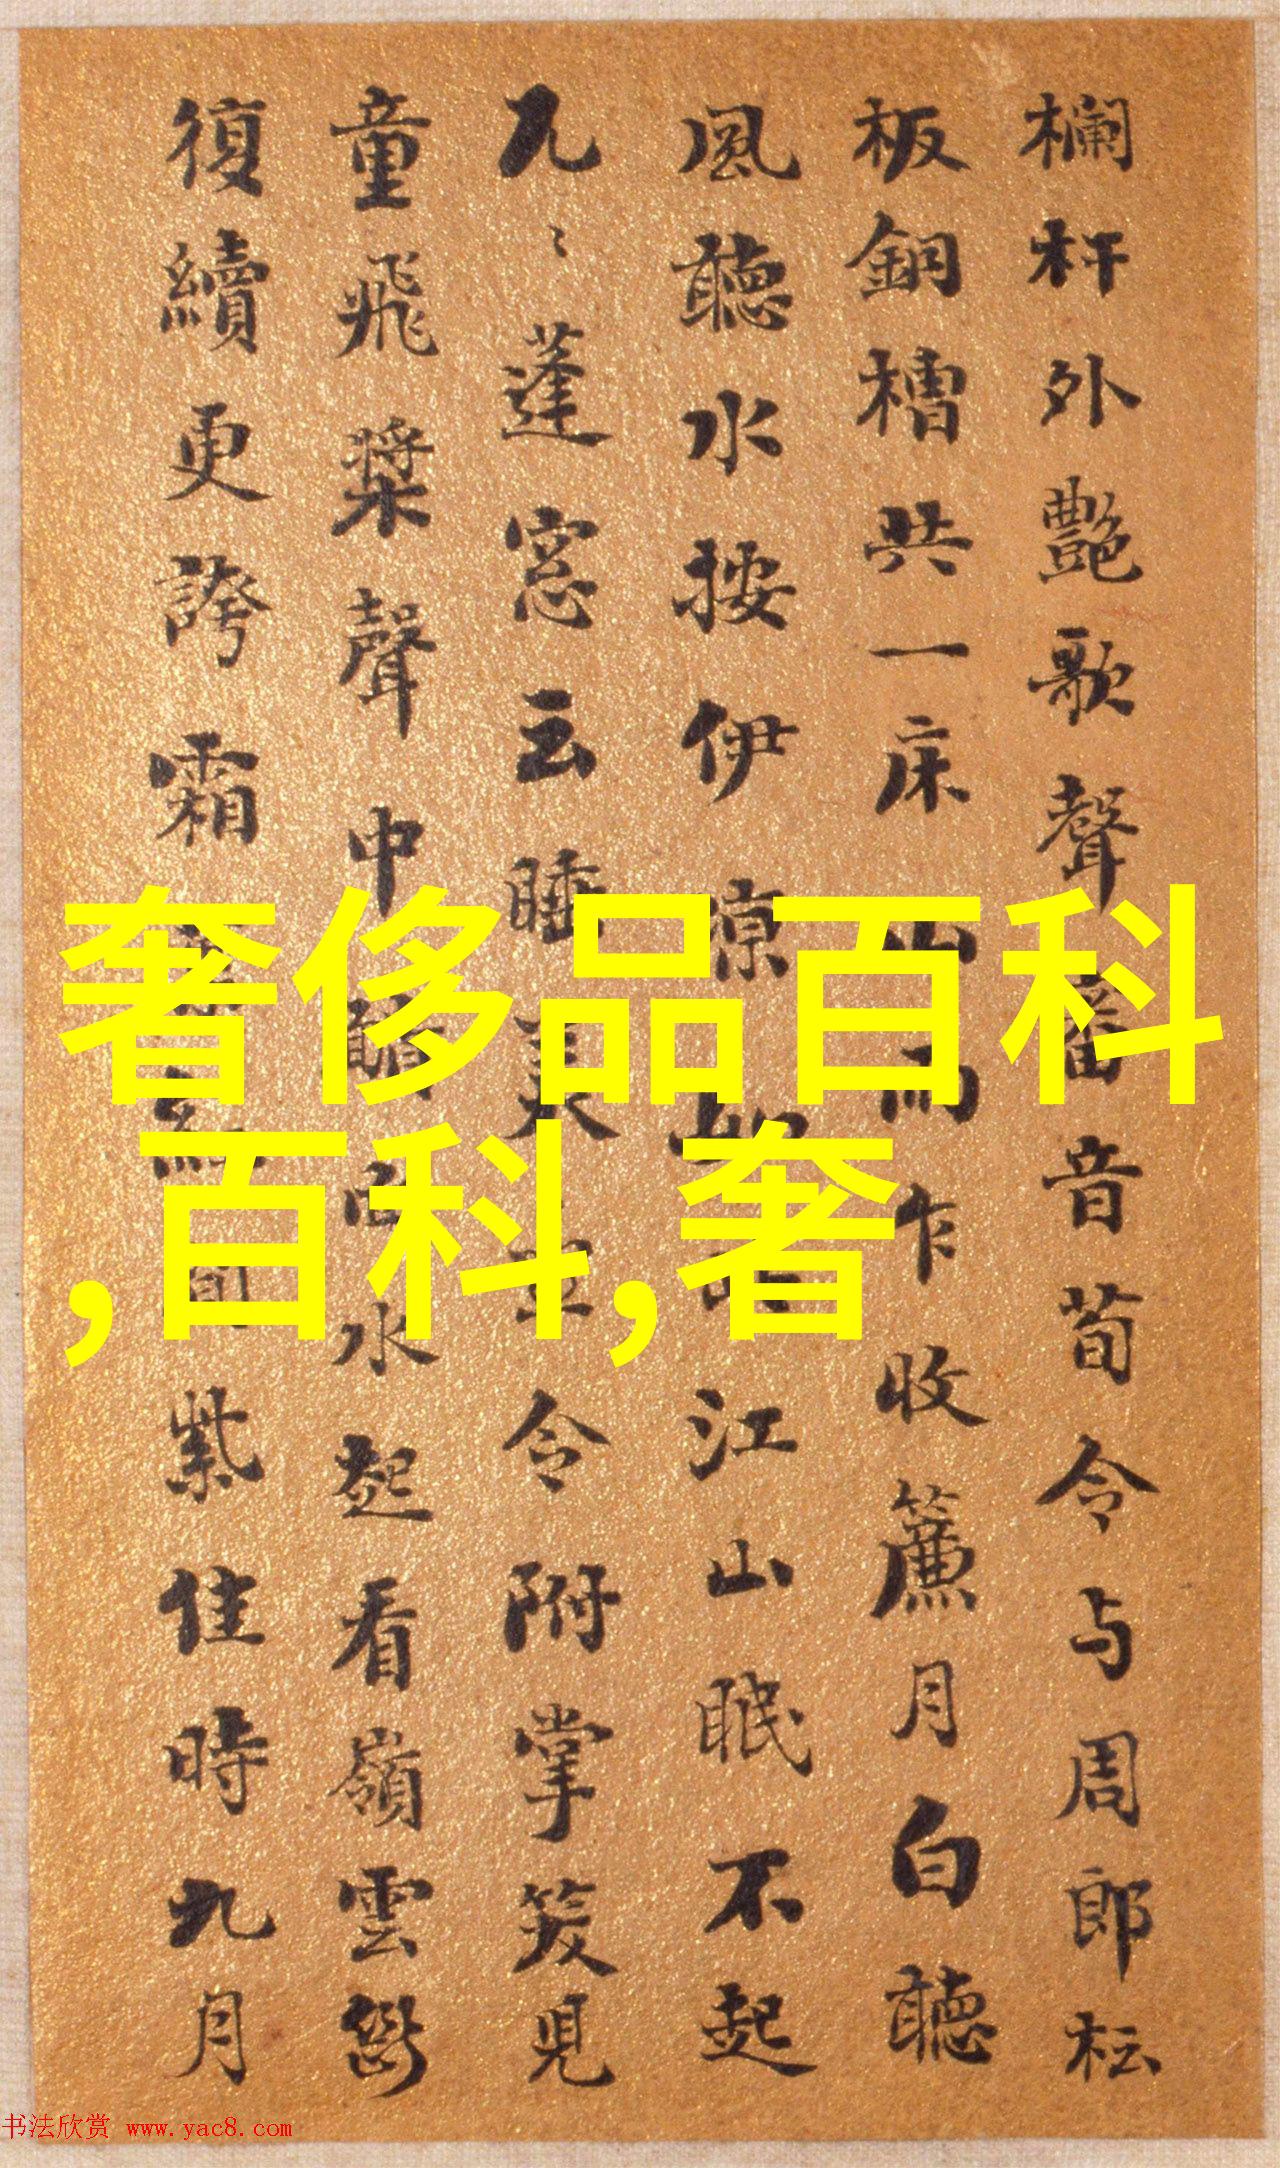 欄杆外艷歌聲番音荀令与周郎枟
板銅槽共一床山雨乍收簾月白聽
風聽水按伊涼江山眠不起
九〻蓬窓云睡美令附掌笑見
童飛槳聲中水起看嶺雲
復續更誇霜紫佳時九月
奢侈品百科
,百科,奢
书法欣赏 www.yac8.com